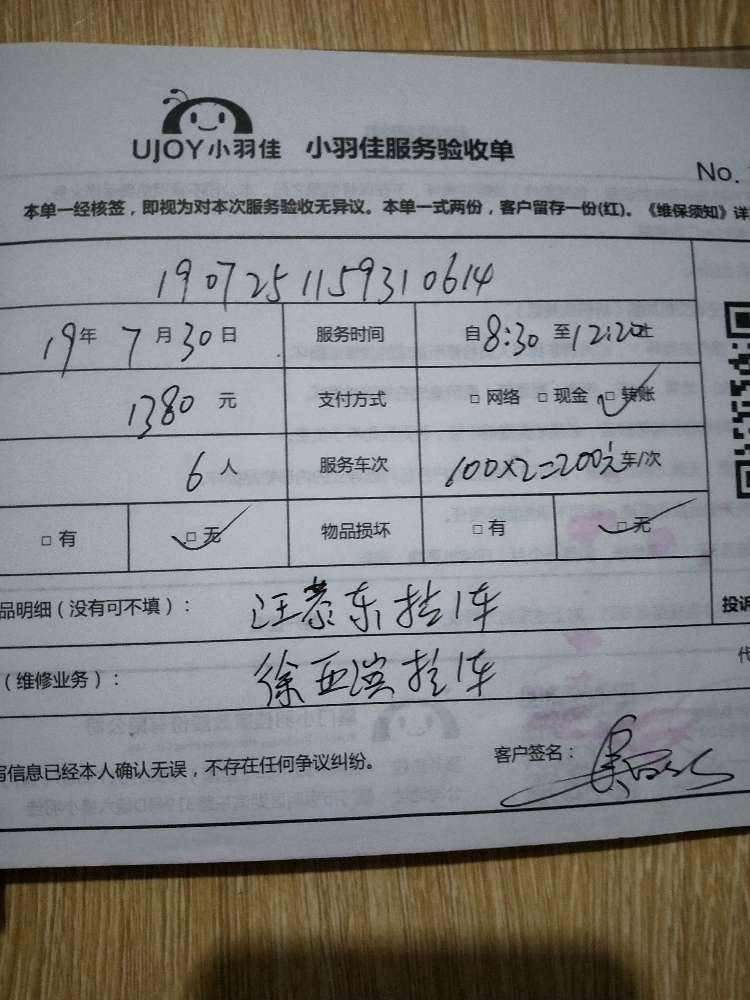 UJOY小羽佳 小羽佳服务验收单
No.
本单一经核签，即视为对本次服务验收无异议。本单一式两份，客户留存一份(红)。《维保须知》详
1907251159310614
19年 7月30日 服务时间 自8:30至12:20止
1380元 支付方式 □网络 □现金 □转账
6人 服务车次 100×2=200元车/次
□有 □无 物品损坏 □有 □无
品明细（没有可不填）： 汪泰东拾1车
投诉
（维修业务）： 徐亚滨拾1车
代
写信息已经本人确认无误，不存在任何争议纠纷。 客户签名：